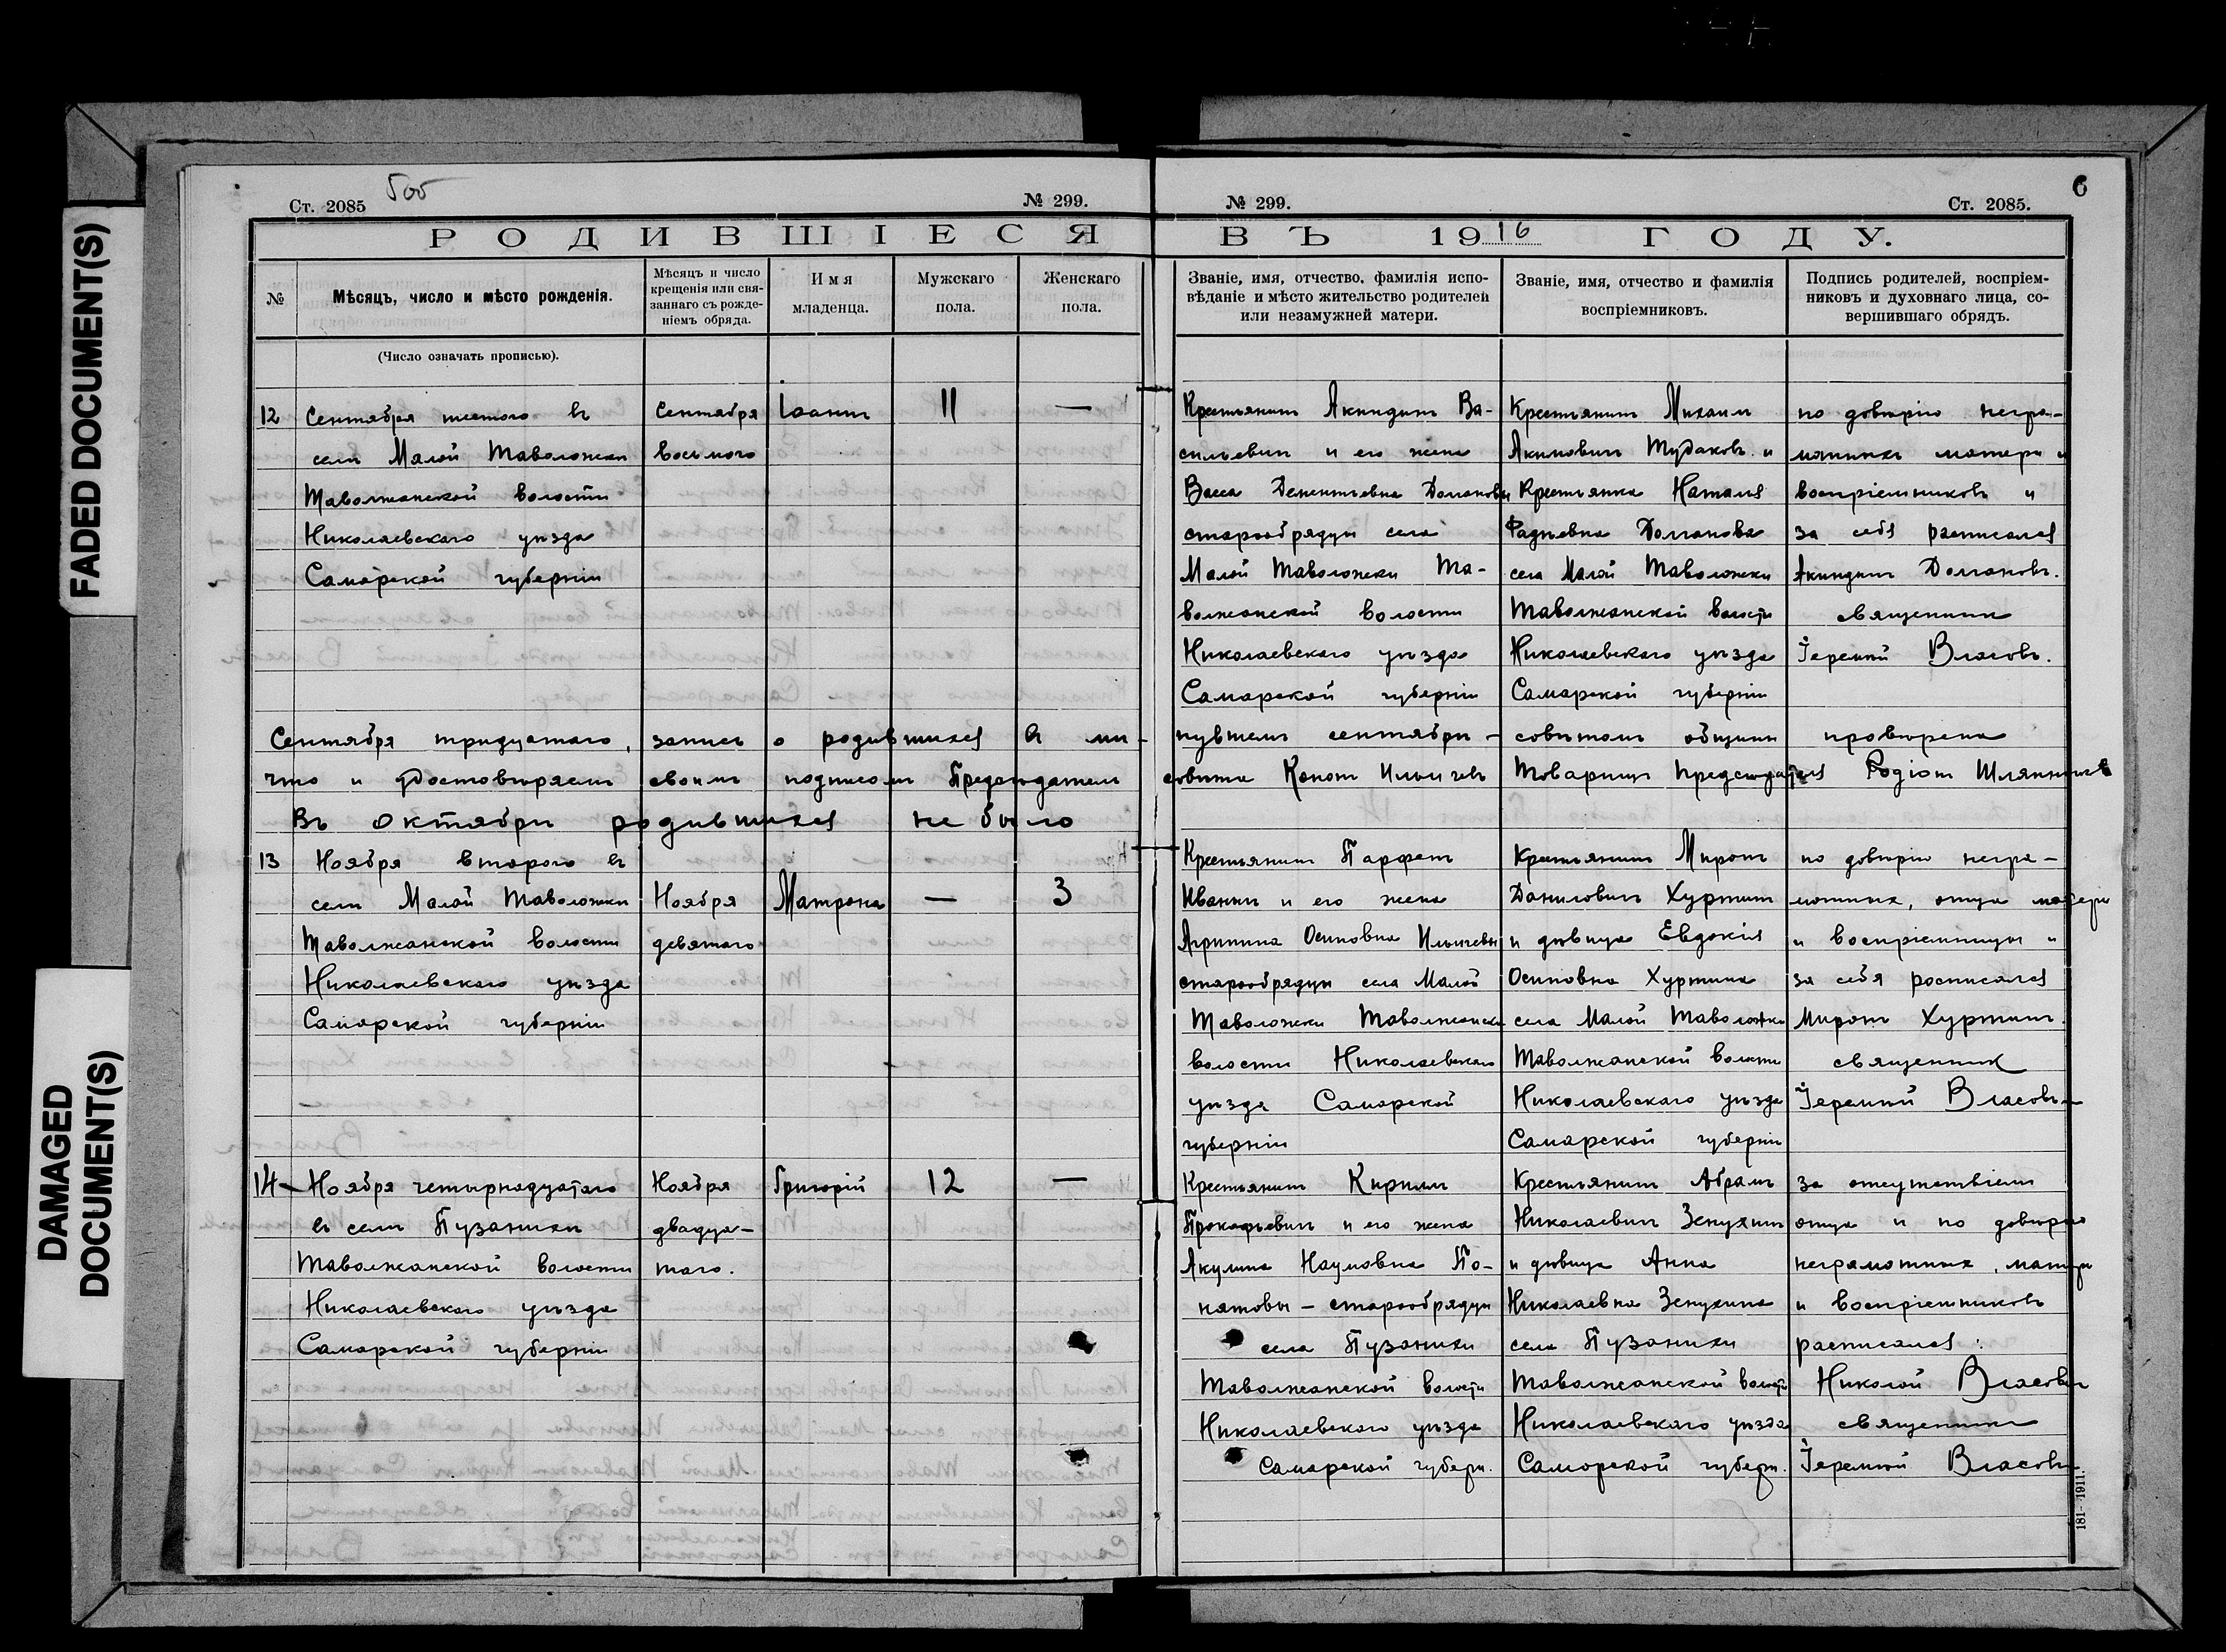 FADED DOCUMENT(S)
DAMAGED
DOCUMENT(S)
Ст. 2085
№ 299.
РОДИВШІЕСЯ
№
Мѣсяцъ, число и мѣсто рожденія.
Мѣсяцъ и число
крещенія или свя-
заннаго съ рожде-
ніемъ обряда.
Имя
младенца.
Мужскаго
пола.
Женскаго
пола.
(Число означать прописью).
№ 299.
Ст. 2085.
6
ВЪ 1916 ГОДУ.
Званіе, имя, отчество, фамилія испо-
вѣданіе и мѣсто жительство родителей
или незамужней матери.
Званіе, имя, отчество и фамилія
воспріемниковъ.
Подпись родителей, воспріем-
никовъ и духовнаго лица, со-
вершившаго обрядъ.
12
Сентября шестого въ
селѣ Малой Таволожки
Таволжанской волости
Николаевскаго уѣзда
Самарской губерніи
Сентября
восьмого
Іоаннъ
11
—
Крестьянинъ Акиндинъ Ва-
сильевичъ и его жена
Васса Дементьевна Долгановы
старообрядцы села
Малой Таволожки Та-
волжанской волости
Николаевскаго уѣзда
Самарской губерніи
Крестьянинъ Михаилъ
Акимовичъ Тудаковъ и
Крестьянка Наталя
Фадѣевна Долганова
села Малой Таволожки
Таволжанской волости
Николаевскаго уѣзда
Самарской губерніи
по довѣрію негра-
мотныхъ матери и
воспріемниковъ и
за себя расписался
Акиндинъ Долгановъ.
священникъ
Іеремій Власовъ.
Сентября тридцатаго, запись о родившихся въ ми-нувшемъ сентябрѣ - совѣтомъ общины провѣрена
что и удостовѣряемъ своимъ подписомъ Предсѣдатель совѣта Кононъ Ильичевъ Товарищъ предсѣдателя Родіонъ
Въ октябрѣ родившихся не было
13
Ноября второго въ
селѣ Малой Таволожки
Таволжанской волости
Николаевскаго уѣзда
Самарской губерніи
Ноября
девятаго
Матрона
—
3
Крестьянинъ Парфенъ
Иванычъ и его жена
Агрипина Осиповна Ильичевы
старообрядцы села Малой
Таволожки Таволжанской
волости Николаевскаго
уѣзда Самарской
губерніи
Крестьянинъ Миронъ
Даниловичъ Хуртинъ
и дѣвица Евдокія
Осиповна Хуртина
села Малой Таволожки
Таволжанской волости
Николаевскаго уѣзда
Самарской губерніи
по довѣрію негра-
мотныхъ, отца матери
и воспріемницы и
за себя росписался
Миронъ Хуртинъ.
священник
Іеремій Власовъ
14
Ноября четырнадцатаго
въ селѣ Пузанихи
Таволжанской волости
Николаевскаго уѣзда
Самарской губерніи
Ноября
двадца-
таго.
Григорій
12
—
Крестьянинъ Кириллъ
Прокофьевичъ и его жена
Акулина Наумовна По-
нятовы - старообрядцы
села Пузанихи
Таволжанской волости
Николаевскаго уѣзда
Самарской губерн.
Крестьянинъ Абрамъ
Николаевичъ Зенухинъ
и дѣвица Анна
Николаевна Зенухина
села Пузанихи
Таволжанской волости
Николаевскаго уѣзда
Самарской губерн.
За отсутствіемъ
отца и по довѣрію
неграмотных, матери
и воспріемниковъ
расписался:
Николай Власовъ
священникъ
Іеремій Власовъ
181—1911.